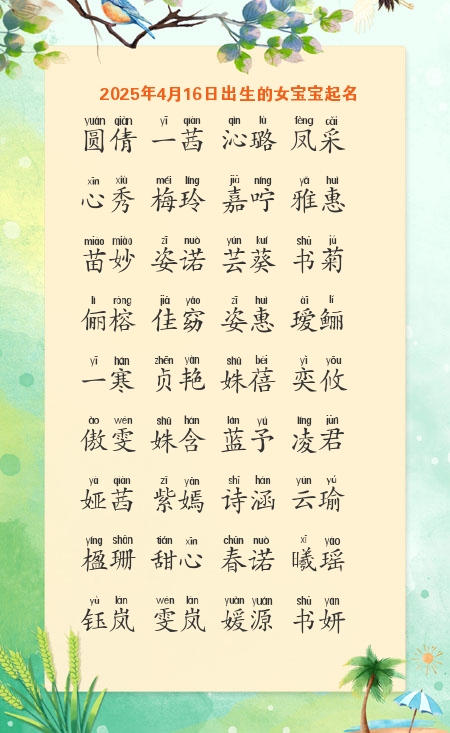 2025年4月16日出生的女宝宝起名
yuán qiàn yī qiàn qìn lù fèng cǎi
圆倩 一茜 沁璐 凤采
xīn xiù méi líng jiā níng yǎ huì
心秀 梅玲 嘉咛 雅惠
miáo miào zī nuò yún kuí shū jú
苗妙 姿诺 芸葵 书菊
lì róng jiā yǎo zī huì ài lí
俪榕 佳窈 姿惠 瑷鲡
yī hán zhēn yàn shū bèi yì yōu
一寒 贞艳 姝蓓 奕攸
ào wén shū hán lán yǔ líng jūn
傲雯 姝含 蓝予 凌君
yà qiàn zǐ yān shī hán yún yú
娅茜 紫嫣 诗涵 云瑜
yíng shān tián xīn chūn nuò xī yáo
楹珊 甜心 春诺 曦瑶
yù lán wén lán yuàn yuán shū yán
钰岚 雯岚 媛源 书妍